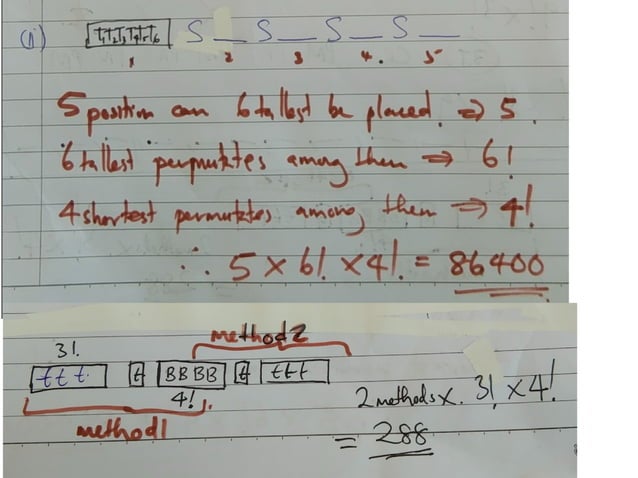 (1) T₁T₂T₃T₄T₅T₆ S __ S __ S __ S __
1 2 3 4. 5
5 position can 6 tallest be placed. ⇒ 5.
6 tallest permutates among them ⇒ 6!
4 shortest permutates among them ⇒ 4!
∴ 5 × 6! × 4! = 86400
method2
3!
t t t t BBBB t t t t
4!
method1
2 methods × 3! × 4!
= 288